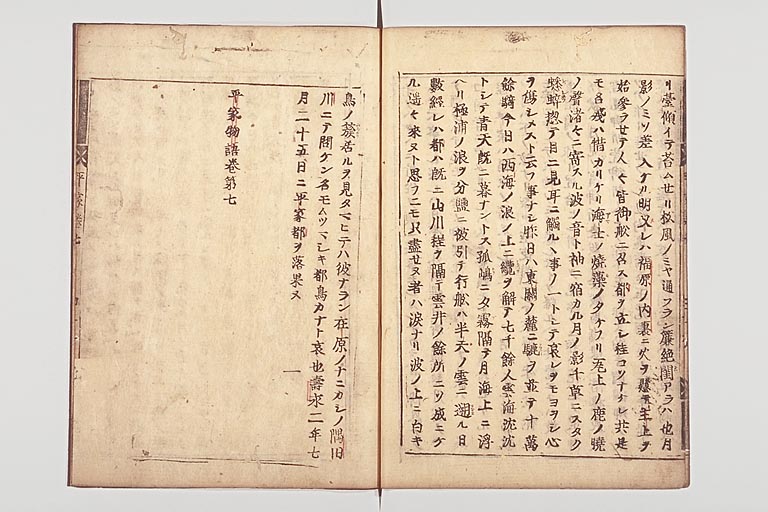 リ臺傾イテ苔ムせリ松風ノミヤ通フラン簾絶閨アラハ也月
影ノミソ差入ケル明又レハ福原ノ内裏ニ火ヲ懸テ主上ヲ
始参ラせテ人々皆御舩ニ召ス都ヲ立シ程コソナケレ共是
モ名残ハ惜カリケリ海士ノ焼藻ノタ煙尾上ノ鹿ノ曉
ノ聲渚々ニ寄スル波ノ音ト袖ニ宿カル月ノ影千草ニスタク
蟋蟀惣テ目ニ見耳ニ觸ルヽ事ノ一トシテ哀レヲモヨヲシ心
ヲ傷シメスト云フ事ナシ昨日ハ東關ノ麓ニ轡ヲ並テ十萬
餘騎今日ハ西海ノ浪ノ上ニ纜ヲ解テ七千餘人雲海沈沈
トシテ青天既ニ暮ナントス孤嶋ニ夕霧隔テ月海上ニ浮
ヘリ極浦ノ浪ヲ分塩ニ被引テ行舩ハ半天ノ雲ニ遡ル日
數經レハ都ハ既ニ山川程ヲ隔テ雲井ノ餘所ニソ成ニケ
ル遥々來ヌト思フニモ只盡せヌ者ハ涙ナリ波ノ上ニ白キ
鳥ノ簇居ルヲ見タマヒテハ彼ナラン在原ノナニカシノ隅田
川ニテ問ケン名モムツマシキ都鳥カナト哀也壽永二年七
月二十五日ニ平家都ヲ落果ヌ
平家物語卷第七
平家 卷七